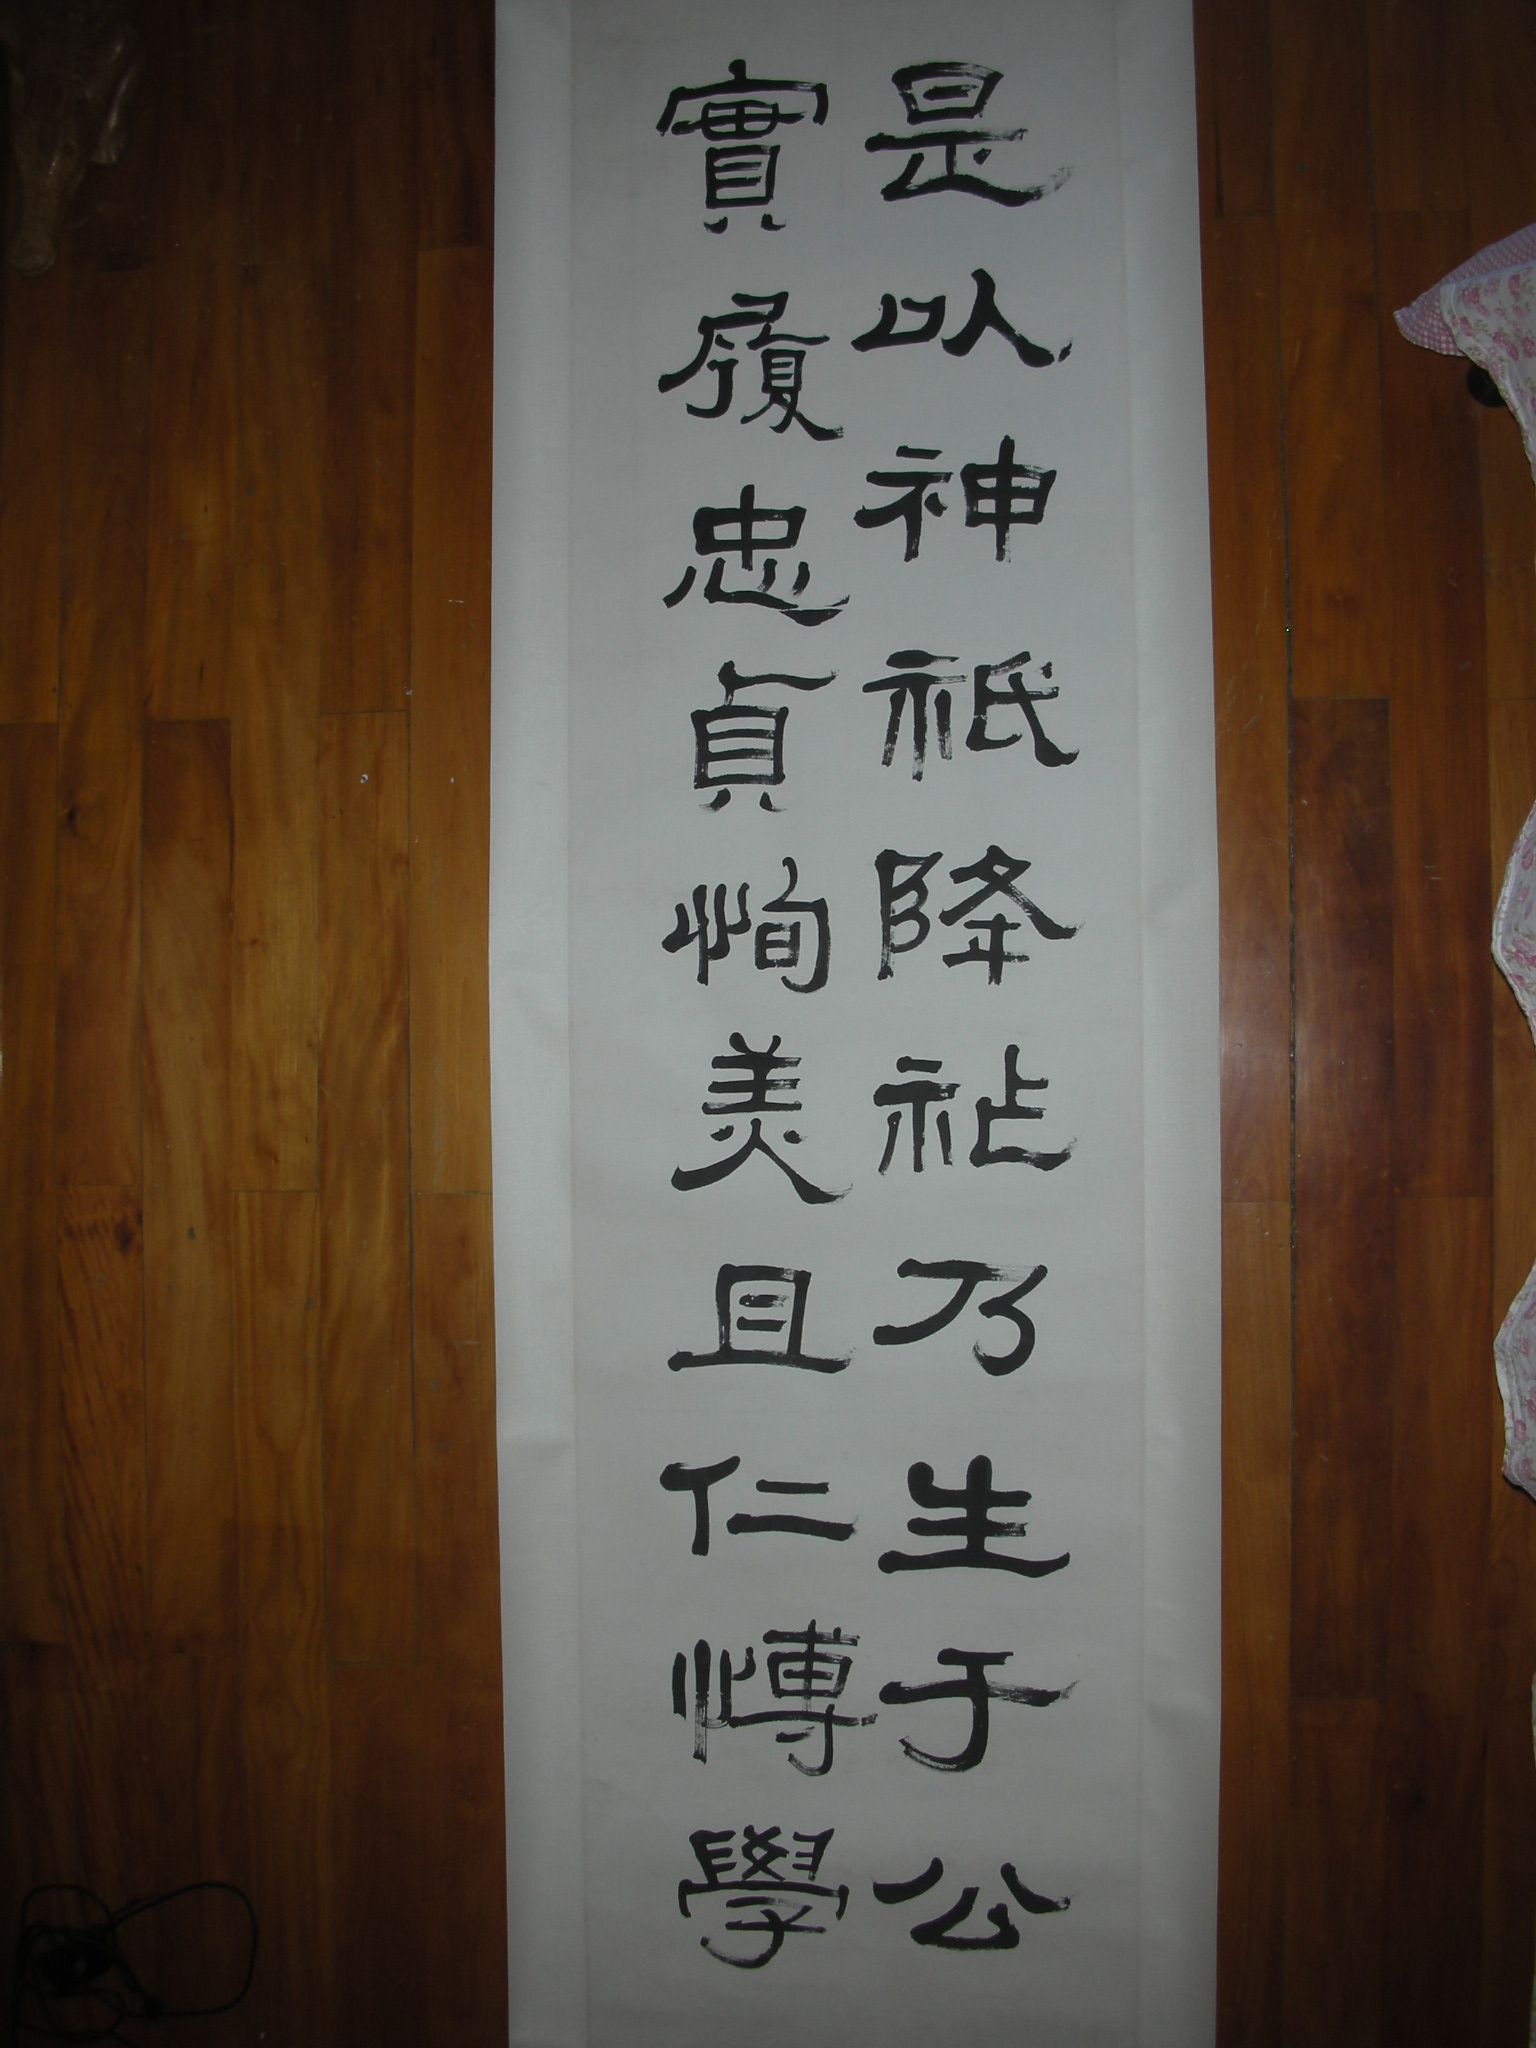 是以神祇降祉乃生于公
實履忠貞恂美且仁博學